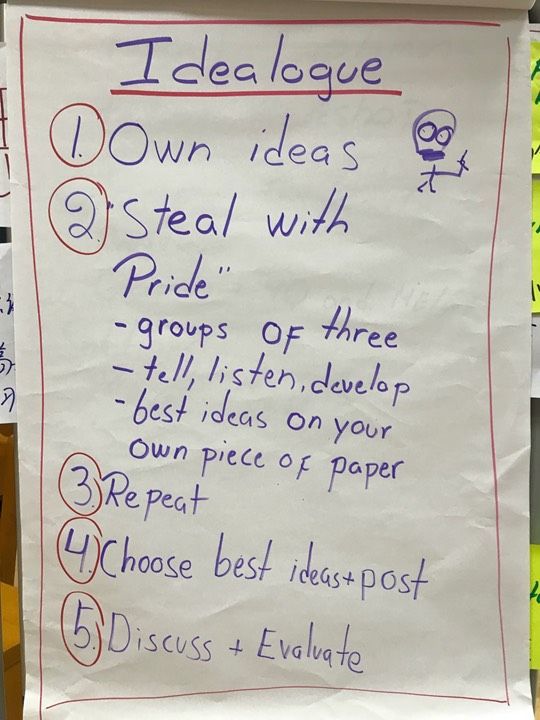 Idealogue
1. Own ideas
2. "Steal with
Pride"
- groups of three
- tell, listen, develop
- best ideas on your
own piece of paper
3. Repeat
4. Choose best ideas + post
5. Discuss + Evaluate